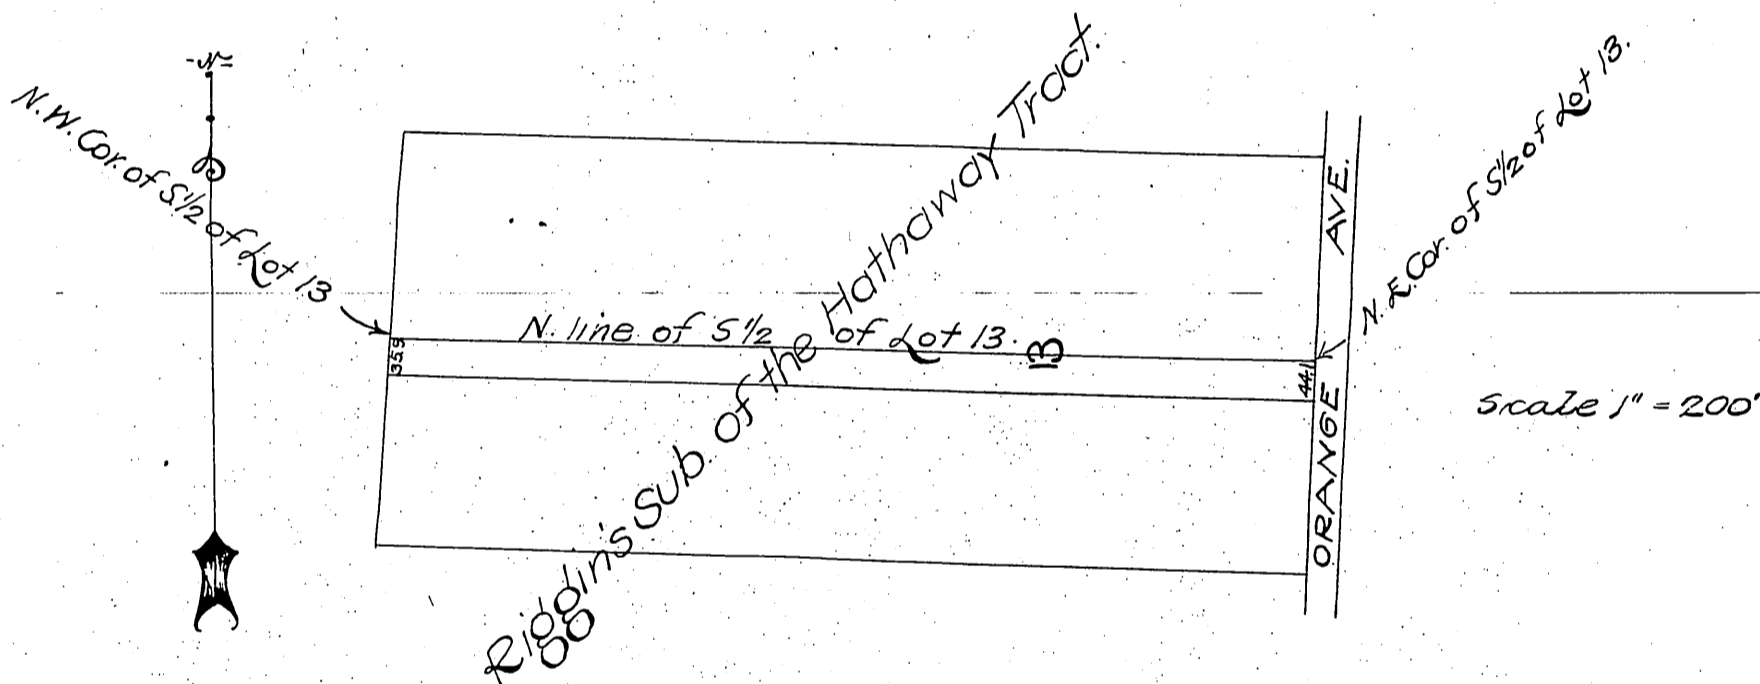 -N-
N.W. Cor. of S.1/2 of Lot 13
Riggin's Sub. of the Hathaway Tract.
N. line of S 1/2 of Lot 13.
13
35.9
44.1
ORANGE AVE.
N.E. Cor. of S1/2 of Lot 13.
Scale 1" = 200'